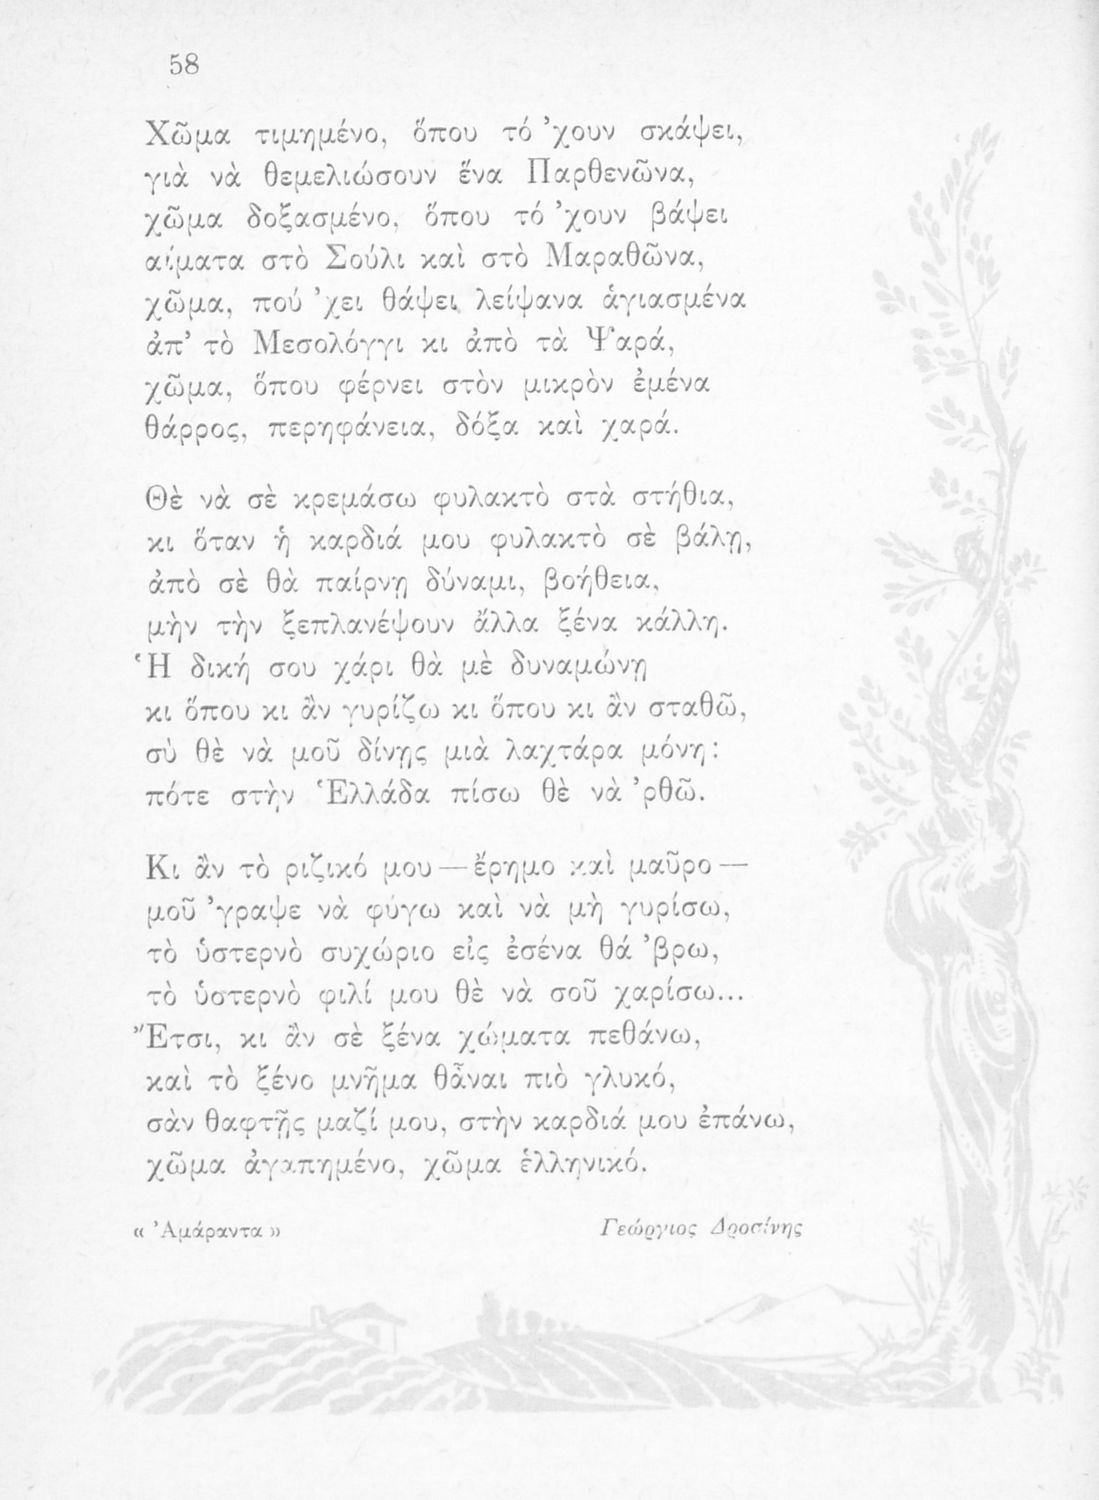 58
Χῶμα τιμημένο, ὅπου τό ’χουν σκάψει,
γιὰ νὰ θεμελιώσουν ἕνα Παρθενῶνα,
χῶμα δοξασμένο, ὅπου τό ’χουν βάψει
αἵματα στὸ Σούλι καὶ στὸ Μαραθῶνα,
χῶμα, πού ’χει θάψει λείψανα ἁγιασμένα
ἀπ’ τὸ Μεσολόγγι κι ἀπὸ τὰ Ψαρά,
χῶμα, ὅπου φέρνει στὸν μικρὸν ἐμένα
θάρρος, περηφάνεια, δόξα καὶ χαρά.
Θὲ νὰ σὲ κρεμάσω φυλακτὸ στὰ στήθια,
κι ὅταν ἡ καρδιά μου φυλακτὸ σὲ βάλη,
ἀπὸ σὲ θὰ παίρνη δύναμι, βοήθεια,
μὴν τὴν ξεπλανέψουν ἄλλα ξένα κάλλη.
Ἡ δική σου χάρι θὰ μὲ δυναμώνη
κι ὅπου κι ἂν γυρίζω κι ὅπου κι ἂν σταθῶ,
σὺ θὲ νὰ μοῦ δίνης μιὰ λαχτάρα μόνη:
πότε στὴν Ἑλλάδα πίσω θὲ νὰ ’ρθῶ.
Κι ἂν τὸ ριζικό μου — ἔρημο καὶ μαῦρο —
μοῦ ’γραψε νὰ φύγω καὶ νὰ μὴ γυρίσω,
τὸ ὑστερνὸ συχώριο εἰς ἐσένα θά ’βρω,
τὸ ὑστερνὸ φιλί μου θὲ νὰ σοῦ χαρίσω...
Ἔτσι, κι ἂν σὲ ξένα χώματα πεθάνω,
καὶ τὸ ξένο μνῆμα θἆναι πιὸ γλυκό,
σὰν θαφτῆς μαζί μου, στὴν καρδιά μου ἐπάνω,
χῶμα ἀγαπημένο, χῶμα ἑλληνικό.
« Ἀμάραντα » Γεώργιος Δροσίνης